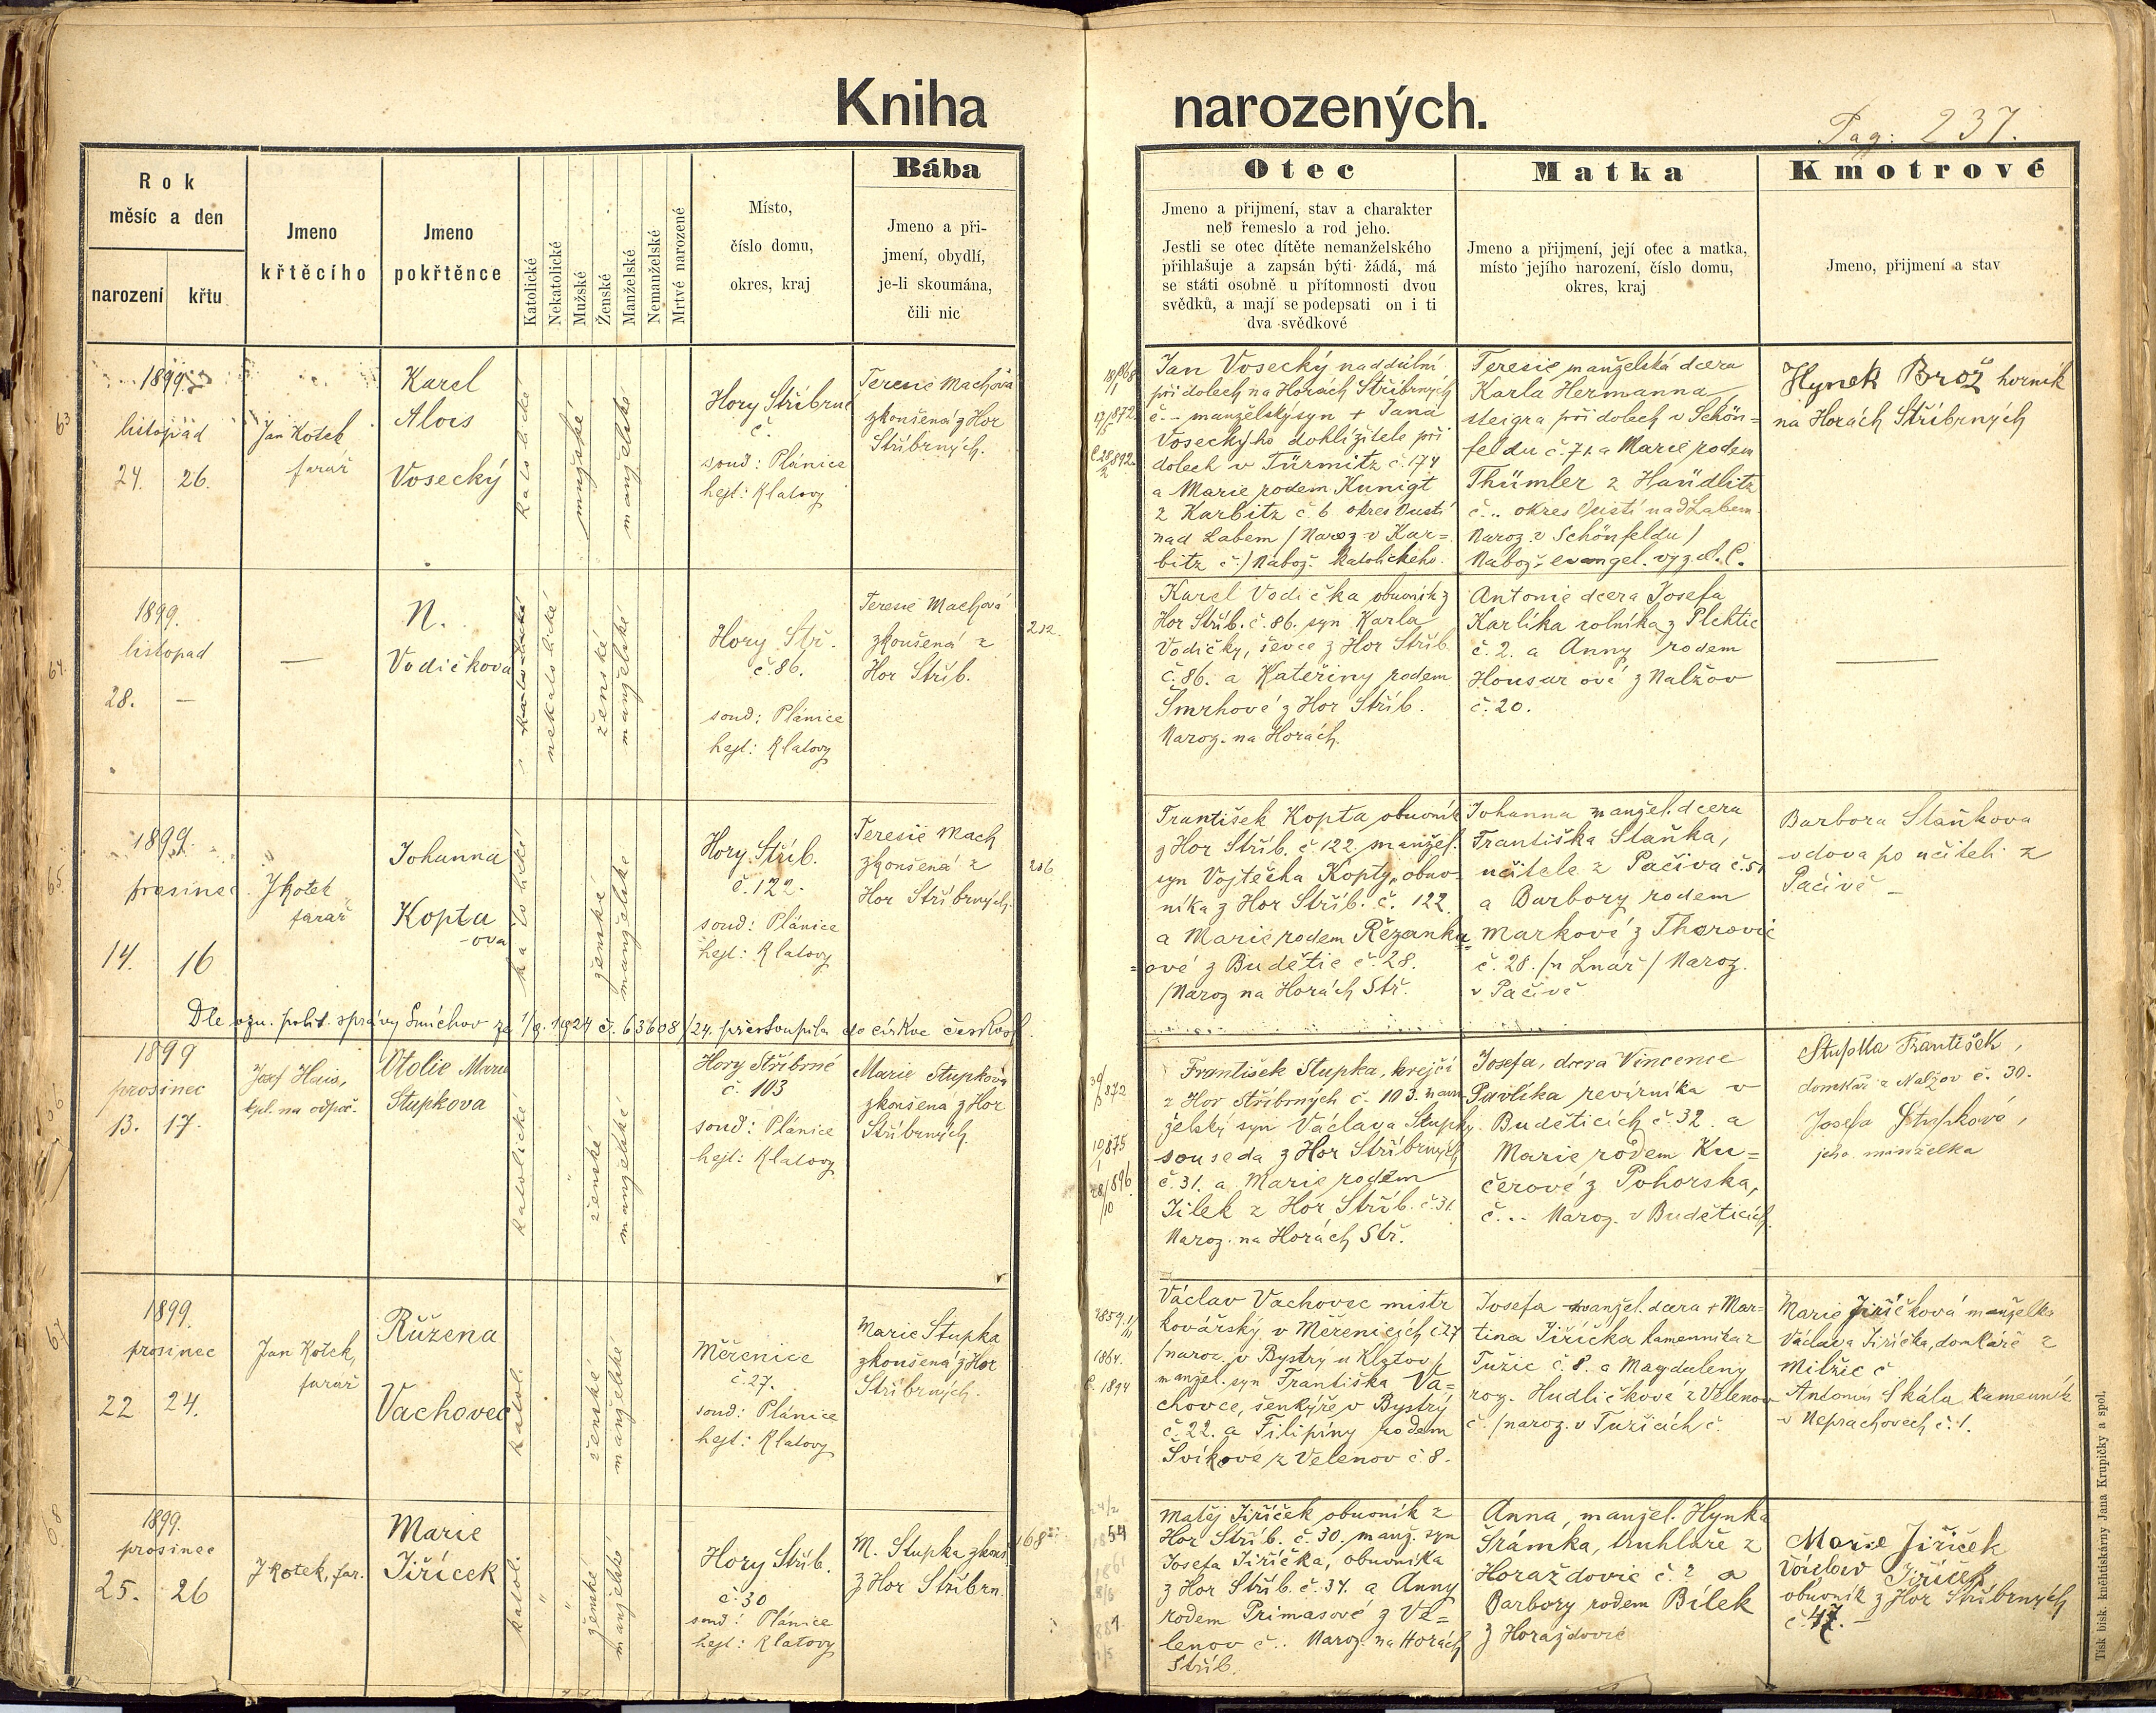 Kniha narozených.
Pag: 237.
Rok
měsíc a den
narození
křtu
Jmeno
křtěcího
Jmeno
pokřtěnce
Katolické
Nekatolické
Mužské
Ženské
Manželské
Nemanželské
Mrtvé narozené
Místo,
číslo domu,
okres, kraj
Bába
Jmeno a při-
jmení, obydlí,
je-li skoumána,
čili nic
Otec
Jmeno a přijmení, stav a charakter
neb řemeslo a rod jeho.
Jestli se otec dítěte nemanželského
přihlašuje a zapsán býti žádá, má
se státi osobně u přítomnosti dvou
svědků, a mají se podepsati on i ti
dva svědkové
Matka
Jmeno a přijmení, její otec a matka,
místo jejího narození, číslo domu,
okres, kraj
Kmotrové
Jmeno, přijmení a stav
63
1899
listopad
24. 26.
Jan Kotek
farář
Karel
Alois
Vosecký
katolické
mužské
manželské
Hory Stříbrné
č.
soud: Plánice
hejt: Klatovy
Teresie Machová
zkoušená z Hor
Stříbrných.
Jan Vosecký naddůlní
při dolech na Horách Stříbrných
č - manželský syn + Jana
Voseckýho dohlížitele při
dolech v Türmitz č. 174
a Marie rodem Kunigt
z Karbitz č 6 okres Oustí
nad Labem / Naroz v Kar=
bitz č / Nabož. katolického.
Teresie manželská dcera
Karla Hermanna
steigra při dolech v Schön=
feldu č. 71. a Marie rodem
Thümler z Haudlitz
č .. okres Oustí nad Labem
Naroz. v Schönfeldu /
Nabož. evangel. vyzn. A. C.
Hynek Brož horník
na Horách Stříbrných
64.
1899.
listopad
28. —
—
N.
Vodičkova
nekatolické
ženské
manželské
Hory Stř.
č. 86.
soud: Plánice
hejt: Klatovy
Teresie Machová
zkoušená z
Hor Stříb.
212.
Karel Vodička obuvník z
Hor Stříb. č. 86. syn Karla
Vodičky, ševce z Hor Stříb.
č. 86. a Kateřiny rodem
Šmrhové z Hor Stříb.
Naroz. na Horách.
Antonie dcera Josefa
Karlíka rolníka z Plchtic
č. 2. a Anny rodem
Housar ové z Nalžov
č. 20.
—
65.
1899.
prosinec
14. 16
J Kotek
farář
Johanna
Kopta
-ova
katolické
ženské
manželské
Hory Stříb.
č. 122.
soud: Plánice
hejt: Klatovy
Teresie Mach
zkoušená z
Hor Stříbrných.
216
František Kopta obuvník
z Hor Stříb. č. 122. manžel.
syn Vojtěcha Kopty, obuv-
níka z Hor Stříb. č. 122.
a Marie rodem Řežanka
=ové z Budětic č. 28.
/Naroz na Horách Stř.
Johanna manžel. dcera
Františka Staňka,
učitele z Pačiva č. 51
a Barbory rodem
Markové z Thorovic
č. 28. /u Lnář / Naroz.
v Pačivě
Barbora Staňkova
vdova po učiteli z
Pačivě —
Dle ozn. polit. správy Smíchov ze 1/9. 1924 č. 63608/24. přestoupila do církve českosl.
66
1899
prosinec
13. 17.
Josef Hais,
kpl. na odpoč.
Otolie Marie
Stupkova
katolické
ženské
manželské
Hory Stříbrné
č. 103
soud: Plánice
hejt: Klatovy
Marie Stupková
zkoušená z Hor
Stříbrných.
František Stupka, krejčí
z Hor Stříbrných č. 103. man-
želský syn Václava Stupky.
souseda z Hor Stříbrných
č. 31. a Marie rodem
Jílek z Hor Stříb. č. 31.
Naroz. na Horách Stř.
Josefa, dcera Vincence
Pavlíka revírníka v
Budeticích č. 32. a
Marie rodem Ku=
čerové z Pohorska,
č... Naroz. v Budeticích.
Stupka František,
domkář z Nalžov č. 30.
Josefa Stupková,
jeho manželka
67
1899.
prosinec
22 24.
Jan Kotek,
farář
Růžena
Vachovec
katol.
ženské
manželské
Měřenice
č. 27.
soud: Plánice
hejt: Klatovy
Marie Stupka
zkoušená z Hor
Stříbrných.
1864.
Václav Vachovec mistr
kovářský v Měřenicích č. 27
/naroz. v Bystrý u Klatov /
manžel. syn Františka Va=
chovce, šenkýře v Bystrý
č. 22. a Filipíny rodem
Švíkové z Velenov č 8.
Josefa manžel. dcera + Mar=
tina Jiříčka kamenníka z
Tužic č. 8. a Magdaleny
roz. Hudličkové z Velenov
č. /naroz. v Tužicích č.
Marie Jiříčková manželka
Václava Jiříčka, domkáře z
Milžic č
Antonín Skála kamenník
v Neprachovech č. 1.
68
1899.
prosinec
25. 26
J Kotek, far.
Marie
Jiříček
katol.
ženské
manželské
Hory Stříb.
č. 30
soud: Plánice
hejt: Klatovy
M. Stupka zkouš.
z Hor Stříbrn.
168
Matěj Jiříček obuvník z
Hor Stříb. č. 30. manž. syn
Josefa Jiříčka, obuvníka
z Hor Stříb. č. 34. a Anny
rodem Primasové z Ve=
lenov č.. Naroz. na Horách
Stříb.
Anna, manžel. Hynka
Šrámka, truhláře z
Horažďovic č. ? a
Barbory rodem Bílek
z Horažďovic
Marie Jiříček
Václav Jiříček
obuvník z Hor Stříbrných
č. 47. —
Tisk bisk. kněhtiskárny Jana Krupičky a spol.